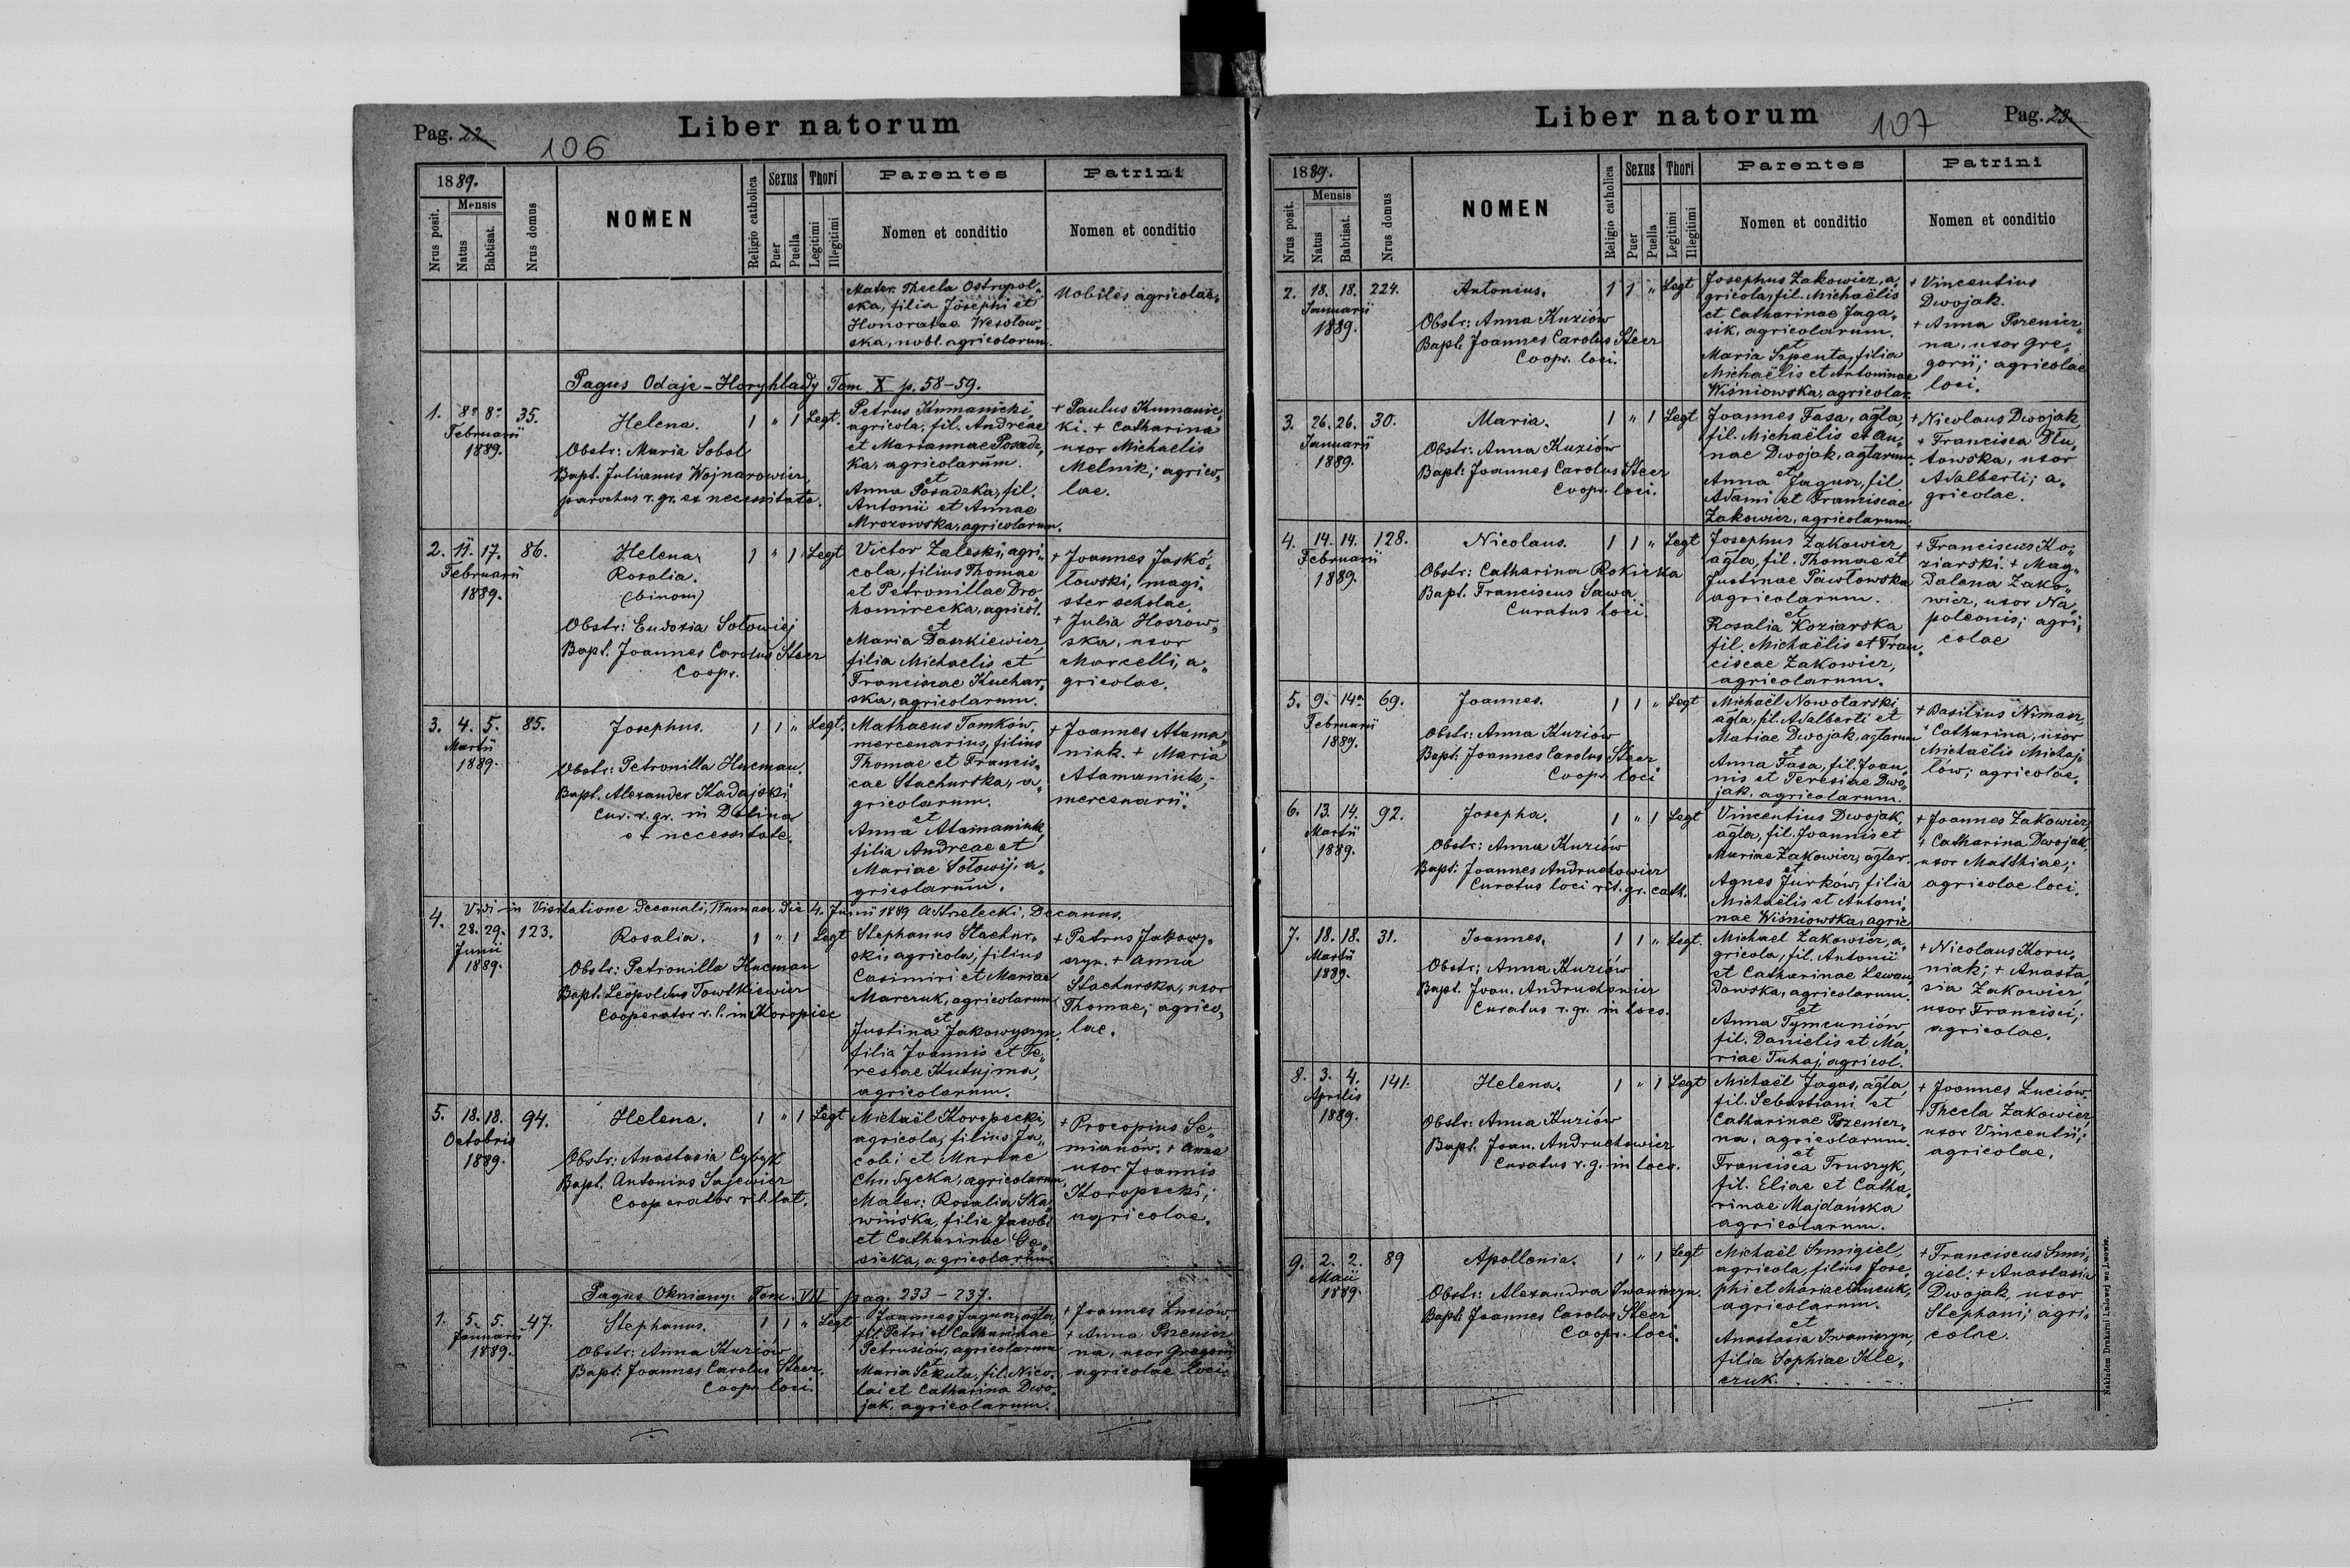 Pag. 22
106
Liber natorum
1889.
Nrus posit.
Mensis
Natus
Babtisat.
Nrus domus
NOMEN
Religio catholica
Sexus
Puer
Puella
Thori
Legitimi
Illegitimi
Parentes
Nomen et conditio
Patrini
Nomen et conditio
Mater. Thecla Ostropol„
ska, filia Josephi et
Honoratae Wesołow„
ska, nobl. agricolarum.
Nobiles agricolae.
Pagus Odaje-Horyhlady Tom X p. 58-59.
1. 8. 8. 35.
Februarii
1889.
Helena. 1 „ 1 Legt.
Obstr: Maria Sobol
Bapt. Julianus Wojnarowicz,
parochus r. gr. ex necessitate.
Petrus Kumanicki,
agricola, fil. Andreae
et Mariannae Posadz„
ka, agricolarum.
et
Anna Posadzka, fil.
Antonii et Annae
Mrozowska, agricolarum.
+ Paulus Kumanic„
ki. + Catharina
uxor Michaelis
Melnik; agrico„
lae.
2. 11. 17. 86.
Februarii
1889.
Helena,
Rosalia.
(binom)
1 „ 1 Legt
Obstr: Eudoxia Sołowiej
Bapt. Joannes Carolus Steer
Coopr.
Victor Zaleski, agri„
cola, filius Thomae
et Petronillae Dro„
homirecka, agricol.
et
Maria Daszkiewicz,
filia Michaelis et
Franciscae Kuchar„
ska, agricolarum.
+ Joannes Jaskó„
łowski, magi„
ster scholae.
+ Julia Hoszow„
ska, uxor
Marcelli, a„
gricolae.
3. 4. 5. 85.
Martii
1889.
Josephus. 1 1 „ Legt.
Obstr: Petronilla Hucman.
Bapt. Alexander Kadajski
Cur. r. gr. in Dolina
ex necessitate.
Mathaeus Tomków,
mercenarius, filius
Thomae et Francis„
cae Stachurska, a„
gricolarum.
et
Anna Atamaniuk,
filia Andreae et
Mariae Sołowij, a„
gricolarum.
+ Joannes Atama„
niuk. + Maria
Atamaniuk;
mercenarii.
Vidi in Visitatione Decanali, Tłumacz die 4. Junii 1889 AStrelecki, Decanus.
4. 28. 29. 123.
Junii
1889.
Rosalia. 1 „ 1 Legt
Obstr: Petronilla Hucman
Bapt. Leopoldus Towstkiewicz
Cooperator r. l. in Koropiec
Stephanus Stachur„
ski, agricola, filius
Casimiri et Mariae
Marczuk, agricolarum
et
Justina Jakowyszyn,
filia Joannis et Te„
resiae Kutujma,
agricolarum.
+ Petrus Jakowy„
szyn. + Anna
Stachurska, uxor
Thomae; agrico„
lae.
5. 18. 18. 94.
Octobris
1889.
Helena. 1 „ 1 Legt
Obstr: Anastasia Cybyk
Bapt. Antonius Sajewicz
Cooperator rit. lat.
Michaël Koropecki,
agricola, filius Ja„
cobi et Mariae
Chudycka, agricolarum,
Mater: Rosalia Ska„
wińska, filia Jacobi
et Catharinae Gę„
sicka, agricolarum.
+ Procopius Se„
mianów. + Anna
uxor Joannis
Koropecki;
agricolae.
Pagus Okniany. Tom. VII pag. 233-237.
1. 5. 5. 47.
Januarii
1889.
Stephanus. 1 1 „ Legt
Obstr: Anna Kuziów
Bapt: Joannes Carolus Steer.
Coopr. loci.
Joannes Jagusz, agla,
fil. Petri et Catharinae
Petrusiów, agricolarum
et
Maria Sekuta, fil. Nico„
lai et Catharina Dwo„
jak, agricolarum.
+ Joannes Luciów,
+ Anna Pszenicz„
na, uxor Gregorii
agricolae loci.
Liber natorum
107
Pag. 23.
1889.
Nrus posit.
Mensis
Natus
Babtisat.
Nrus domus
NOMEN
Religio catholica
Sexus
Puer
Puella
Thori
Legitimi
Illegitimi
Parentes
Nomen et conditio
Patrini
Nomen et conditio
2. 18. 18. 224.
Januarii
1889.
Antonius. 1 1 „ Legt
Obstr: Anna Kuziów
Bapt: Joannes Carolus Steer
Coopr. loci.
Josephus Zakowicz, a„
gricola, fil. Michaëlis
et Catharinae Jaga„
sik, agricolarum.
et
Maria Szpenta, filia
Michaëlis et Antoninae
Wiśniowska, agricolar.
+ Vincentius
Dwojak.
+ Anna Pszenicz„
na, uxor Gre„
gorii; agricolae
loci.
3. 26. 26. 30.
Januarii
1889.
Maria. 1 „ 1 Legt
Obstr: Anna Kuziów
Bapt: Joannes Carolus Steer
Coopr. loci.
Joannes Fasa, agla,
fil. Michaëlis et An„
nae Dwojak, aglarum.
et
Anna Jagusz, fil
Adami et Franciscae
Zakowicz, agricolarum.
+ Nicolaus Dwojak
+ Francisca Dłu„
towska, uxor
Adalberti; a„
gricolae.
4. 14. 14. 128.
Februarii
1889.
Nicolaus. 1 1 „ Legt
Obstr: Catharina Rokicka
Bapt. Franciscus Sawa
Curatus loci.
Josephus Zakowicz
agla, fil. Thomae et
Justinae Pawłowska
agricolarum.
et
Rosalia Koziarska
fil. Michaëlis et Fran„
ciscae Zakowicz,
agricolarum.
+ Franciscus Ko„
ziarski. + Mag„
dalena Zako„
wicz, uxor Na„
poleonis; agri„
colae
5. 9. 14. 69.
Februarii
1889.
Joannes. 1 1 „ Legt
Obstr: Anna Kuziów
Bapt: Joannes Carolus Steer
Coopr. loci
Michaël Nowotarski
agla, fil. Adalberti et
Mariae Dwojak, aglarum
et
Anna Fasa, fil. Joan„
nis et Teresiae Dwo„
jak, agricolarum.
+ Basilius Nimasz,
+ Catharina, uxor
Michaëlis Michaj„
lów; agricolae.
6. 13. 14. 92.
Martii
1889.
Josepha. 1 „ 1 Legt
Obstr: Anna Kuziów
Bapt: Joannes Andruchowicz
Curatus loci rit. gr. cath.
Vincentius Dwojak,
agla, fil. Joannis et
Mariae Zakowicz, aglar.
et
Agnes Jurków, filia
Michaëlis et Antoni„
nae Wiśniowska, agric.
+ Joannes Zakowicz
+ Catharina Dwojak,
uxor Matthiae;
agricolae loci.
7. 18. 18. 31.
Martii
1889.
Joannes. 1 1 „ Legt.
Obstr: Anna Kuziów
Bapt. Joan. Andruchowicz
Curatus r. gr. in loco.
Michaël Zakowicz, a„
gricola, fil. Antonii
et Catharinae Lewan„
dowska, agricolarum.
et
Anna Tymcuniów,
fil. Danielis et Ma„
riae Tuhaj, agricol.
+ Nicolaus Koru„
niak; + Anasta„
sia Zakowicz
uxor Francisci;
agricolae.
8. 3. 4. 141.
Aprilis
1889.
Helena. 1 „ 1 Legt
Obstr: Anna Kuziów
Bapt. Joan. Andruchowicz
Curatus r. g. in loco.
Michaël Jagas, agla,
fil. Sebastiani et
Catharinae Pszenicz„
na, agricolarum.
et
Francisca Truszyk,
fil. Eliae et Catha„
rinae Majdańska
agricolarum.
+ Joannes Luciów.
+ Thecla Zakowicz,
uxor Vincentii;
agricolae.
9. 2. 2. 89
Maii
1889.
Apollonia. 1 „ 1 Legt
Obstr: Alexandra Iwaniszyn.
Bapt: Joannes Carolus Steer
Coopr. loci.
Michaël Szmigiel,
agricola, filius Jose„
phi et Mariae Kucuk,
agricolarum.
et
Anastasia Iwaniszyn,
filia Sophiae Kle„
czuk.
+ Franciscus Szmi„
giel. + Anastasia
Dwojak, uxor
Stephani; agri„
colae.
Nakładem Drukarni Ludowej we Lwowie.